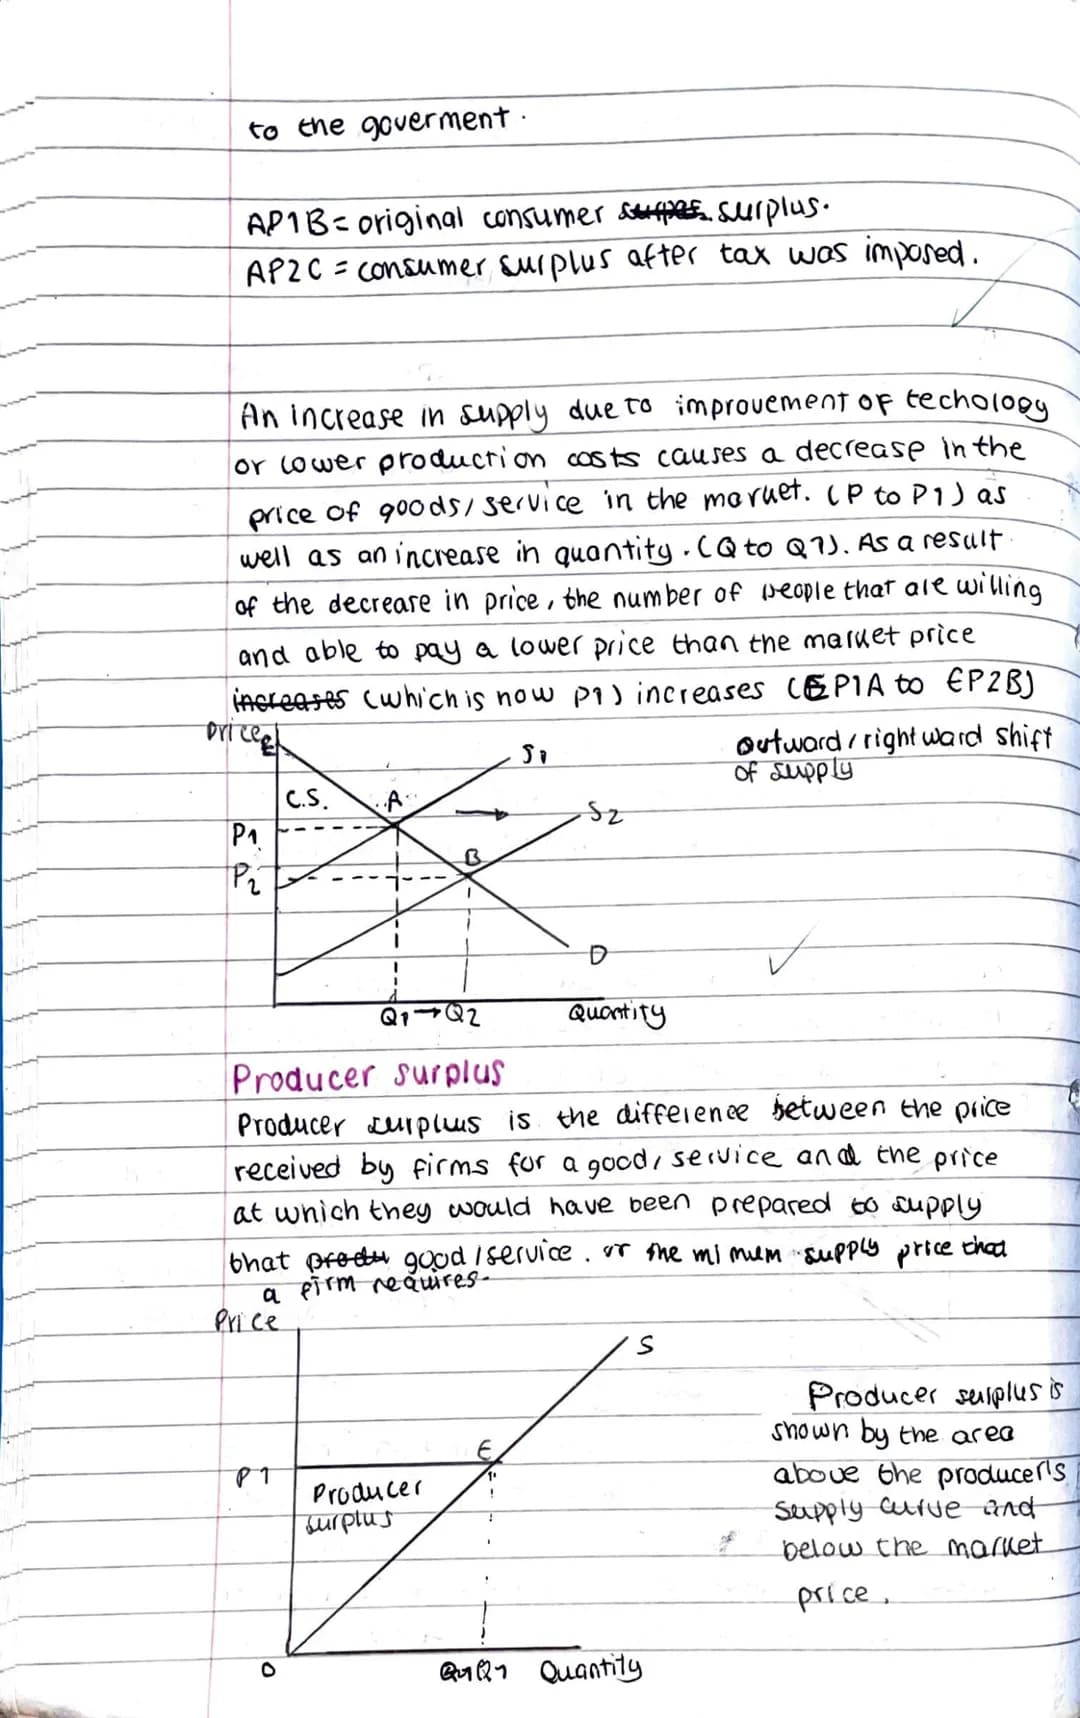 to the goverment.
AP1B = original consumer surplus.
AP2C = consumer surplus after tax was imposed.
An increase in supply due to improvement of techology
or lower production costs causes a decrease in the
price of goods/service in the maruet. (P to P1) as
well as an increase in quantity. (Q to Q1). As a result
of the decrease in price, the number of people that are willing
and able to pay a lower price than the maruet price
increases (which is now P1) increases (EP1A to EP2B)
Price
E
outward/rightward shift
of supply
S1
C.S.
A
S2
P1
B
P2
D
Q1→Q2 Quantity
Producer surplus
Producer surplus is the difference between the price
received by firms for a good/service and the price
at which they would have been prepared to supply
that produ good/service. or the mimum supply price that
a firm requires.
Price
S
Producer surplus is
shown by the area
above the producer's
supply curve and
below the maruet
price.
E
P1
Producer
surplus
0
Q1 Quantity